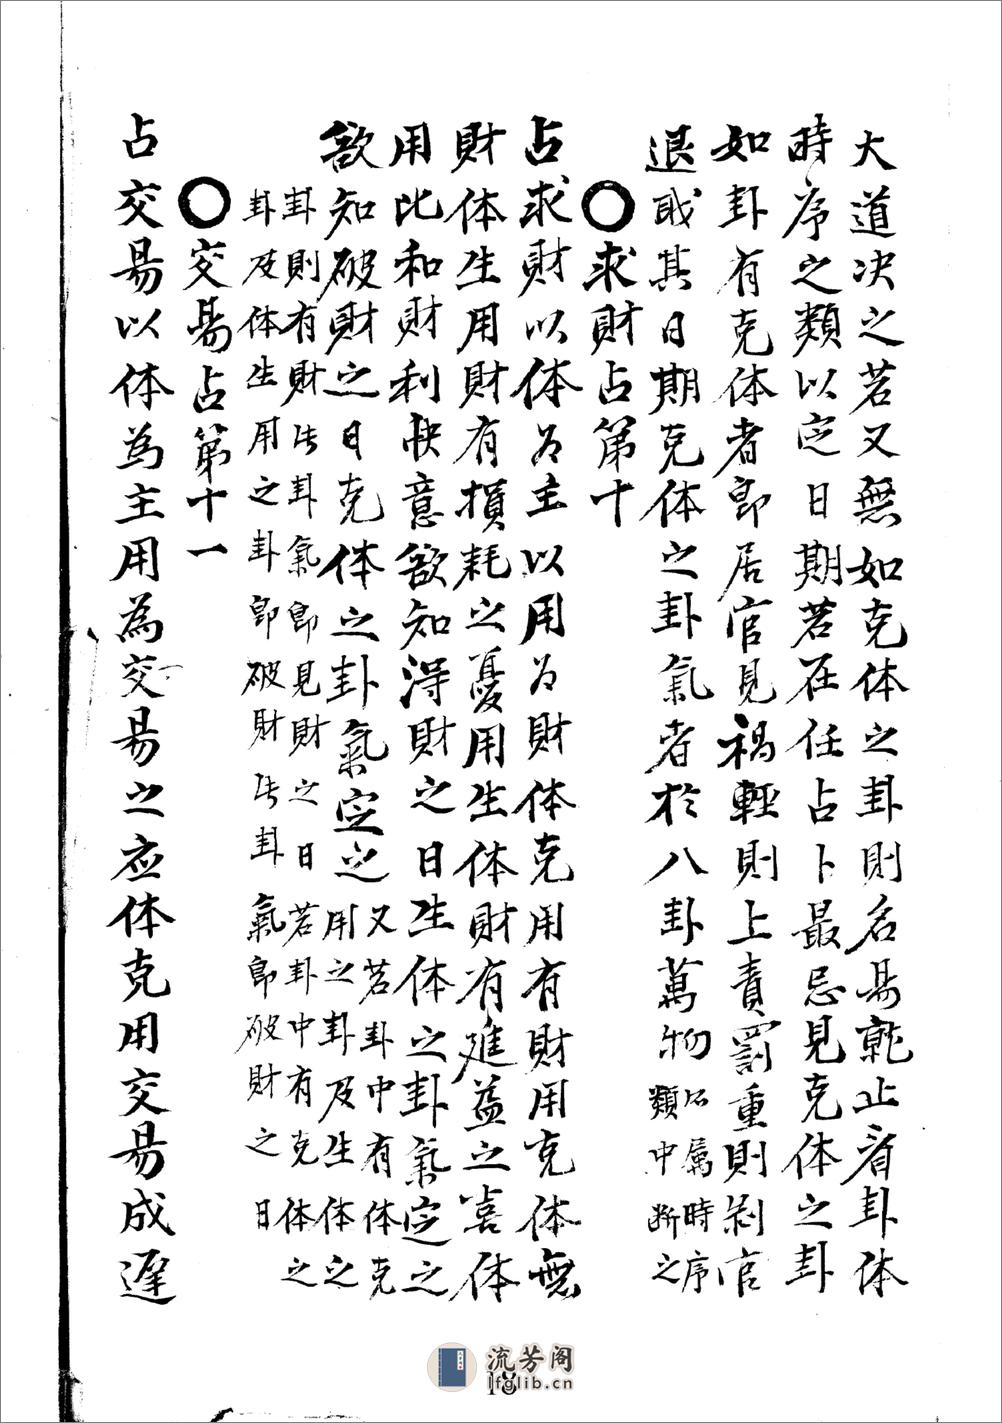 大道决之若又無如克体之卦則名易就止看卦体
時序之類以定日期若在任占卜最忌見克体之卦
如卦有克体者即居官見禍輕則上責罰重則剥官
退戝其日期克体之卦氣者於八卦萬物所属時序
類中断之
〇求財占第十
占求財以体為主以用為財体克用有財用克体無
財体生用財有損耗之憂用生体財有進益之喜体
用比和財利快意欲知得財之日生体之卦氣定之
欲知破財之日克体之卦氣定之又若卦中有体克
用之卦及生体之
卦則有財此卦氣即見財之日若卦中有克体之
卦及体生用之卦即破財此卦氣即破財之日
〇交易占第十一
占交易以体為主用為交易之应体克用交易成遲
流芳阁
lfglib.cn
18